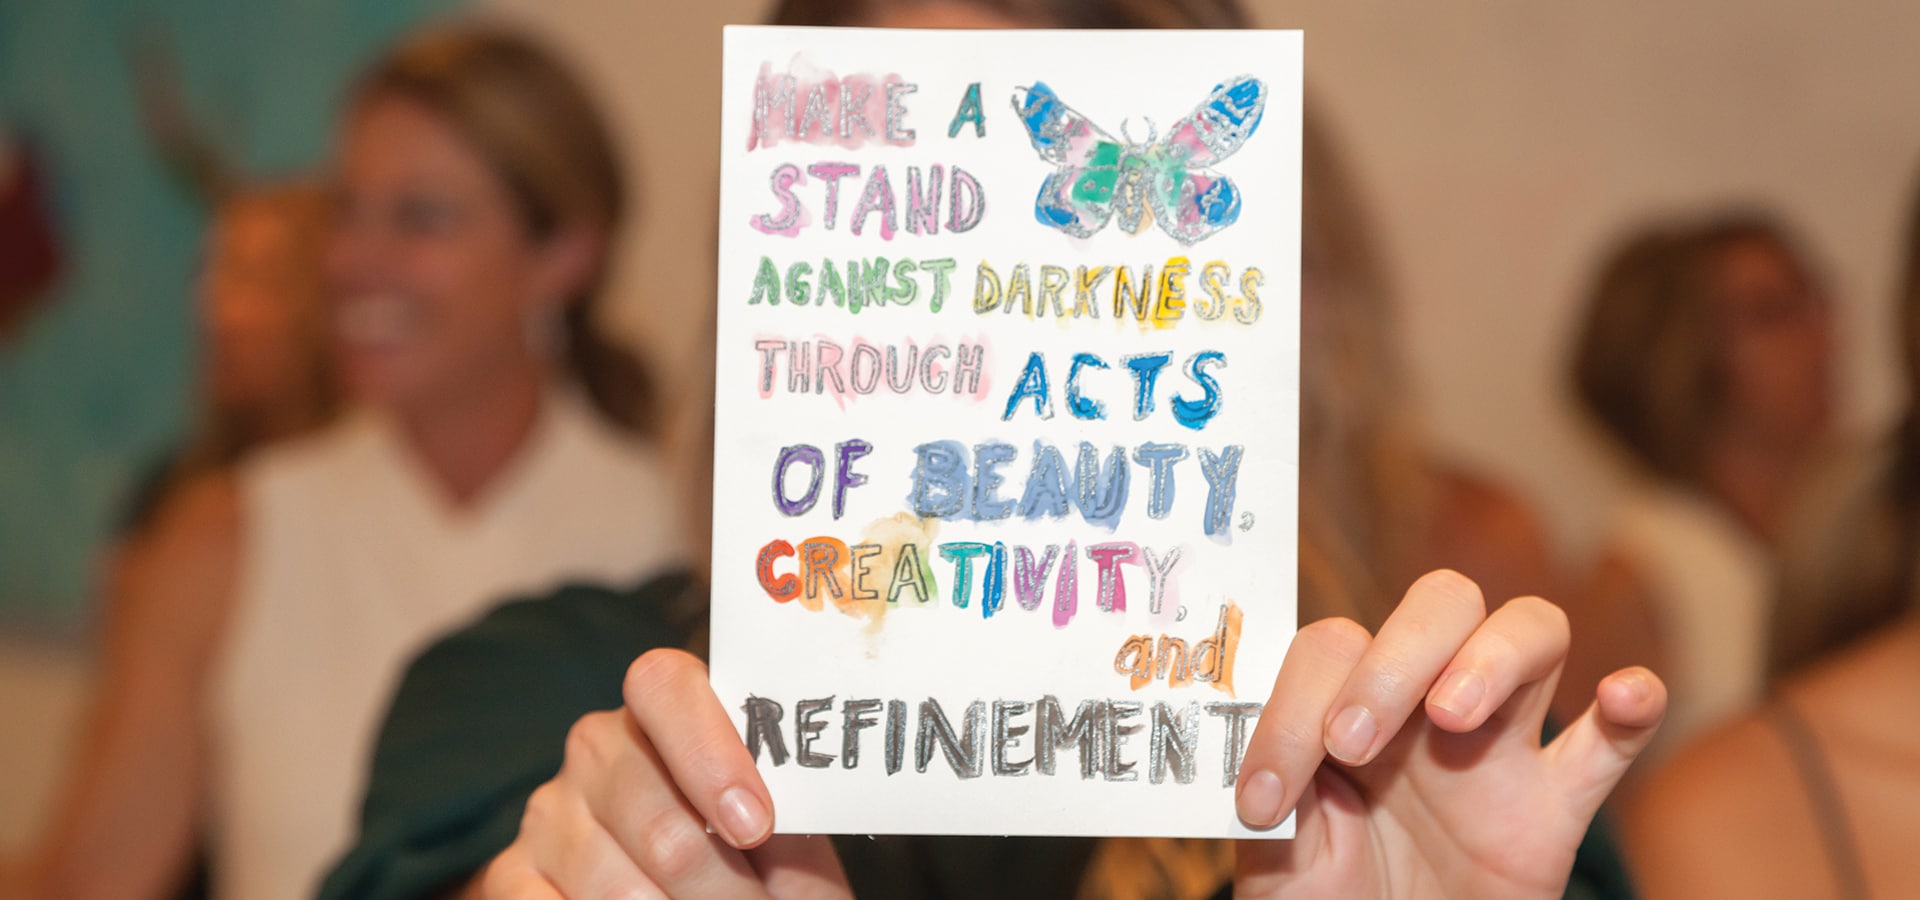 MAKE A
STAND
AGAINST DARKNESS
THROUGH ACTS
OF BEAUTY,
CREATIVITY,
and
REFINEMENT